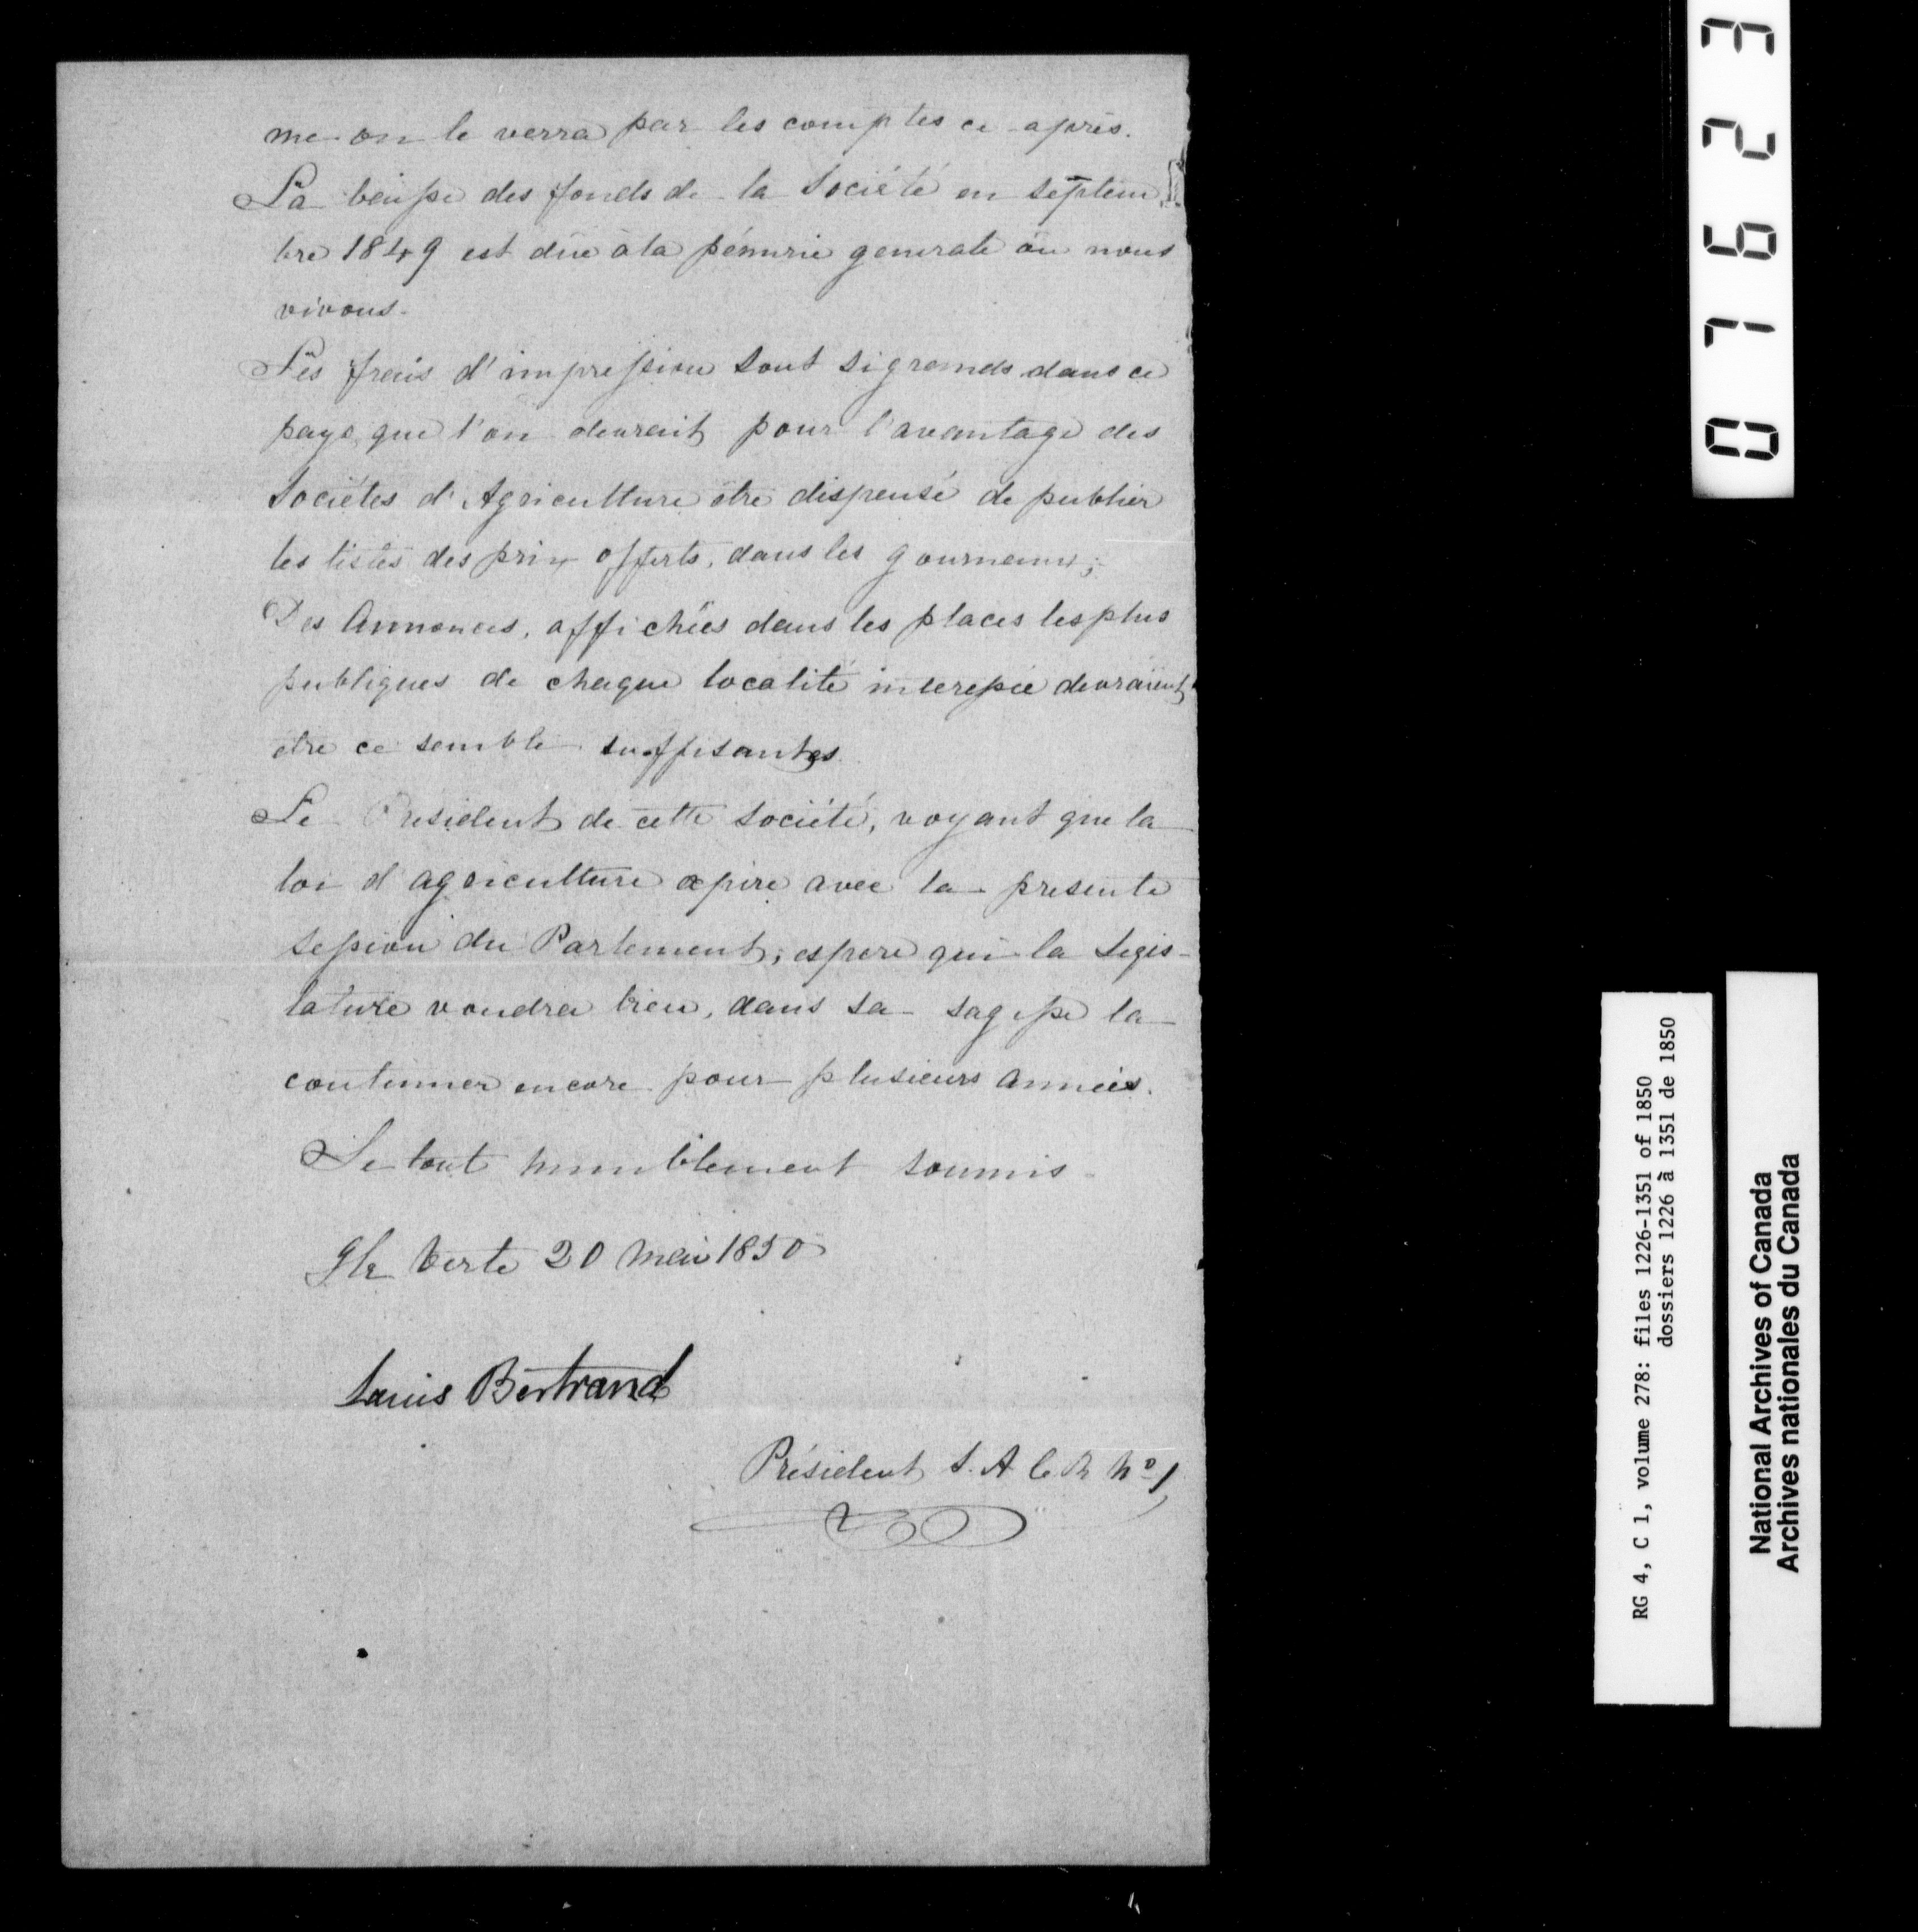 me on le verra par les comptes ci-après.
La baisse des fonds de la Société en Septem
bre 1849 est dûe à la pénurie generale où nous
vivons.
Les frais d'impression sont si grands dans ce
pays, que l'on devrait pour l'avantage des
Sociétés d'Agriculture être dispensé de publier
les listes des prix offerts, dans les gournaux;
Des Annonces, affichées dans les places les plus
publiques de chaque localité interessée devraient
être ce semble suffisantes.
Le Président de cette Société, voyant que la
loi d'agriculture expire avec la presente
session du Parlement, espere que la Légis-
lature voudra bien, dans sa sagesse la
continuer encore pour plusieurs années.
Le tout humblement soumis.
Isle Verte 20 Mai 1850
Louis Bertrand
Président S. A C R No 1
07623
RG 4, C 1, volume 278: files 1226-1351 of 1850
dossiers 1226 à 1351 de 1850
National Archives of Canada
Archives nationales du Canada